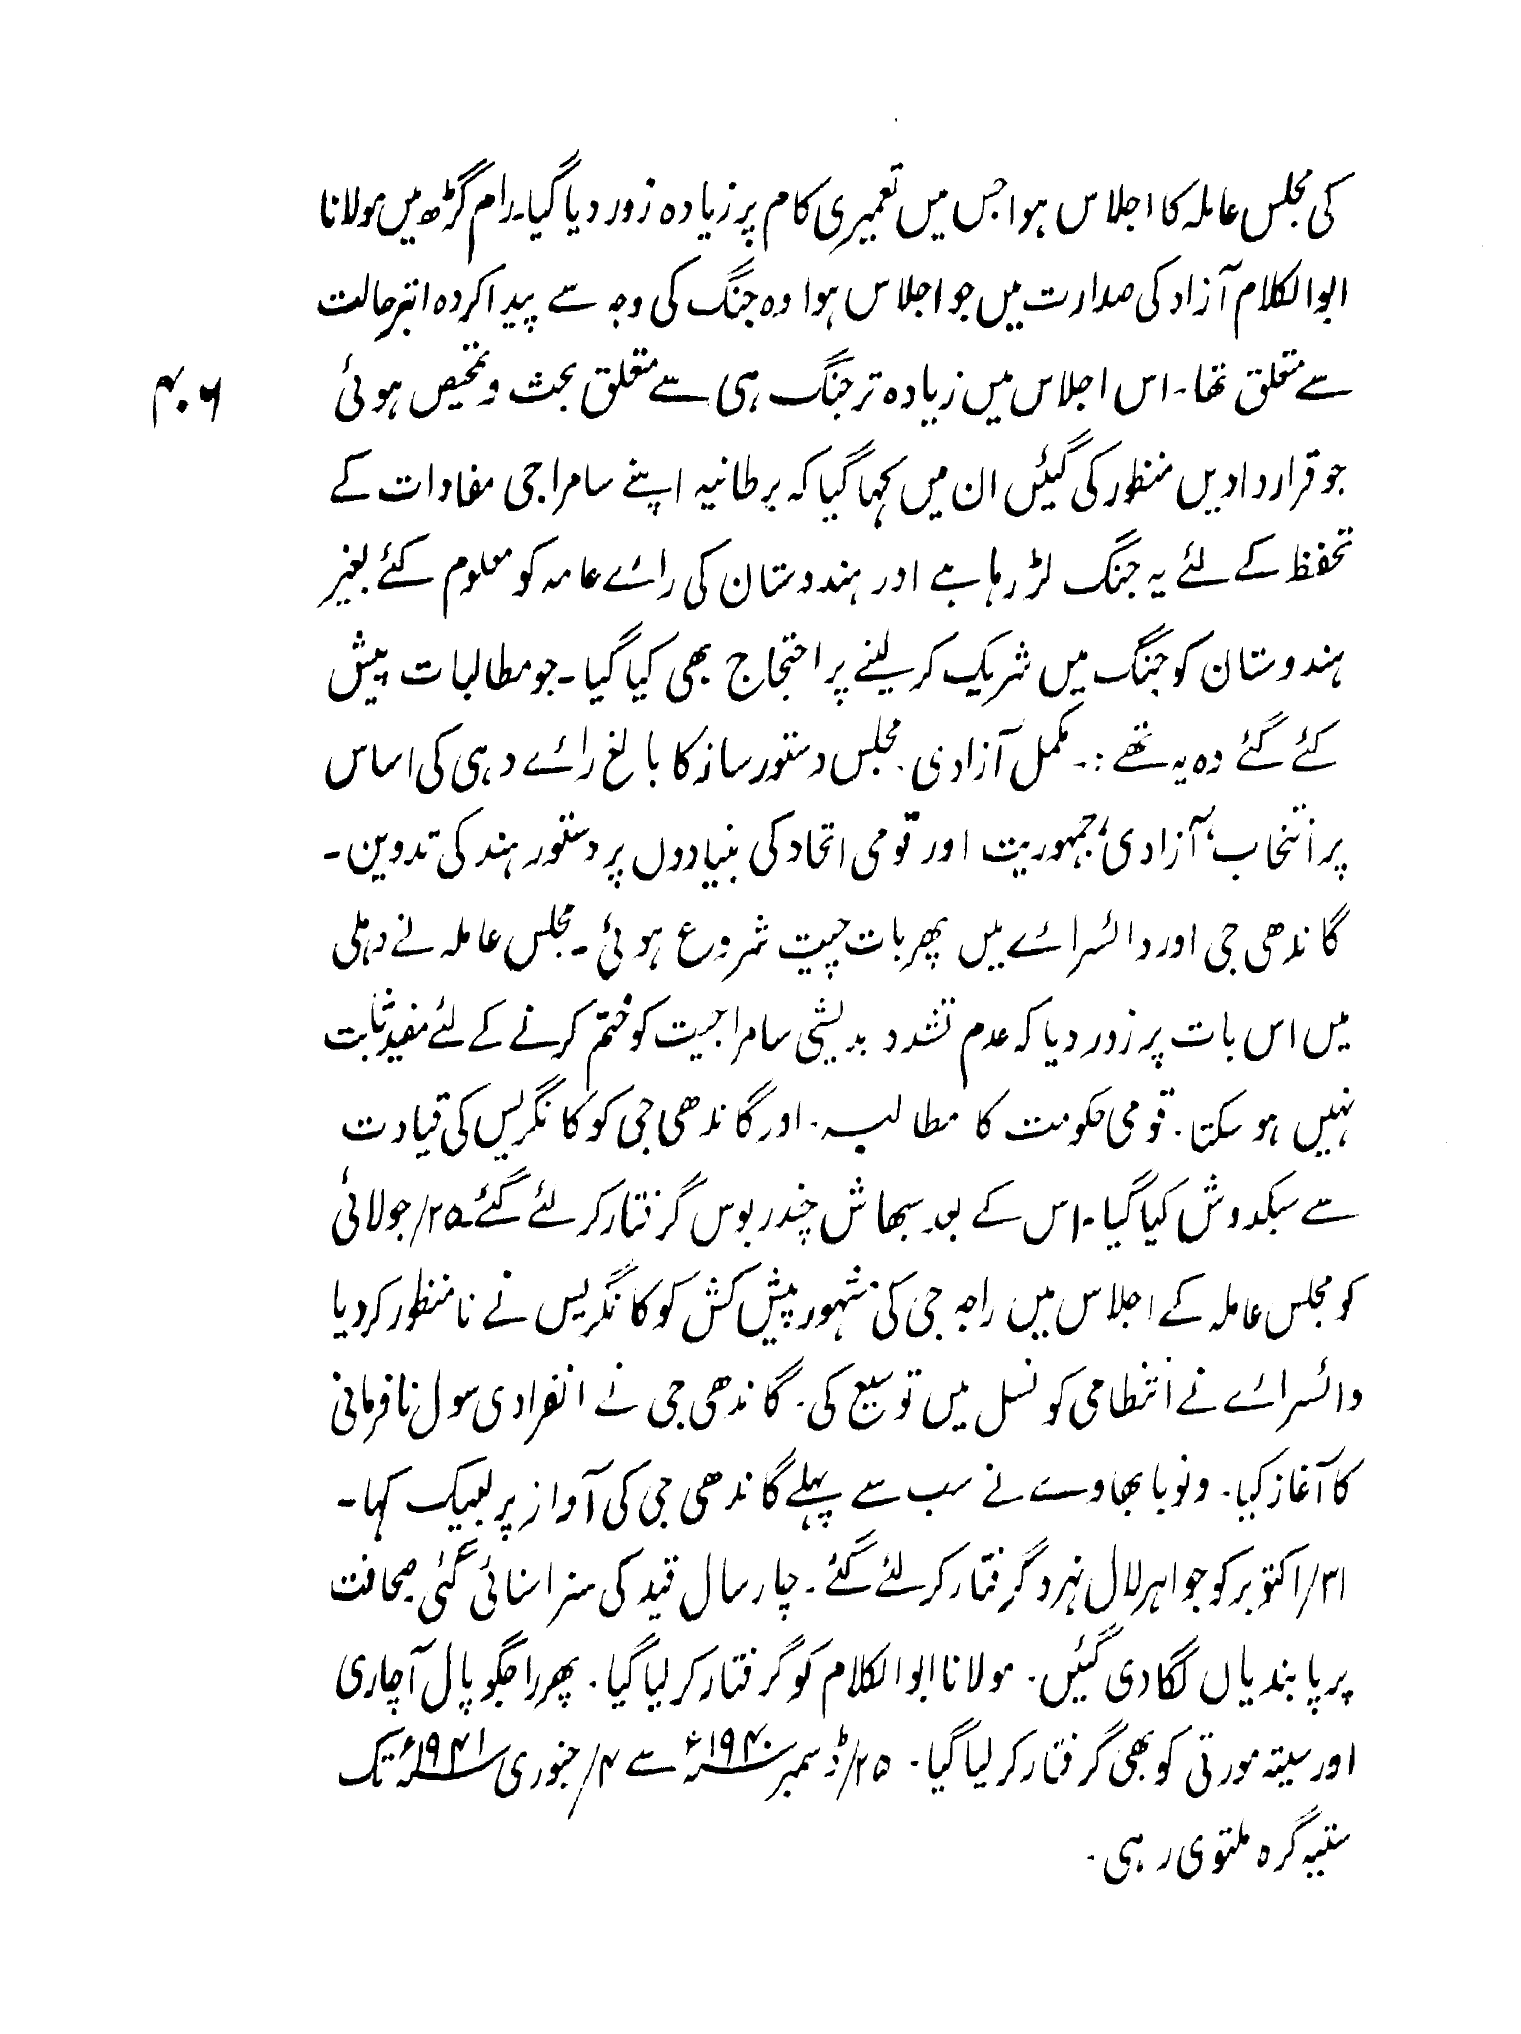 کی مجلس عاملہ کا اجلاس ہوا جس میں تعمیری کام پر زیادہ زور دیا گیا۔ رام گڑھ میں مولانا
ابوالکلام آزاد کی صدارت میں جو اجلاس ہوا وہ جنگ کی وجہ سے پیدا کردہ ابتر حالت
سے متعلق تھا۔ اس اجلاس میں زیادہ تر جنگ ہی سے متعلق بحث و تمحیص ہوئی
۴۰۶
جو قراردادیں منظور کی گئیں ان میں کہا گیا کہ برطانیہ اپنے سامراجی مفادات کے
تحفظ کے لئے یہ جنگ لڑ رہا ہے اور ہندوستان کی رائے عامہ کو معلوم کئے بغیر
ہندوستان کو جنگ میں شریک کر لینے پر احتجاج بھی کیا گیا۔ جو مطالبات پیش
کئے گئے وہ یہ تھے :۔ مکمل آزادی۔ مجلس دستور ساز کا بالغ رائے دہی کی اساس
پر انتخاب، آزادی، جمہوریت اور قومی اتحاد کی بنیادوں پر دستور ہند کی تدوین۔
گاندھی جی اور وائسرائے میں پھر بات چیت شروع ہوئی۔ مجلس عاملہ نے دہلی
میں اس بات پر زور دیا کہ عدم تشدد بدیشی سامراجیت کو ختم کرنے کے لئے مفید ثابت
نہیں ہو سکتا۔ قومی حکومت کا مطالبہ۔ اور گاندھی جی کو کانگریس کی قیادت
سے سبکدوش کیا گیا۔ اس کے بعد سبھاش چندر بوس گرفتار کر لئے گئے۔ ۲۵/جولائی
کو مجلس عاملہ کے اجلاس میں راجہ جی کی مشہور پیش کش کو کانگریس نے نامنظور کر دیا
وائسرائے نے انتظامی کونسل میں توسیع کی۔ گاندھی جی نے انفرادی سول نافرمانی
کا آغاز کیا۔ ونوبا بھاوے نے سب سے پہلے گاندھی جی کی آواز پر لبیک کہا۔
۳۱/اکتوبر کو جواہر لال نہرو گرفتار کر لئے گئے۔ چار سال قید کی سزا سنائی گئی صحافت
پر پابندیاں لگا دی گئیں۔ مولانا ابوالکلام کو گرفتار کر لیا گیا۔ پھر راجگوپال آچاری
اور سیتہ مورتی کو بھی گرفتار کر لیا گیا۔ ۲۵/ڈسمبر ۱۹۴۰ء سے ۴/جنوری ۱۹۴۱ء تک
ستیہ گرہ ملتوی رہی۔